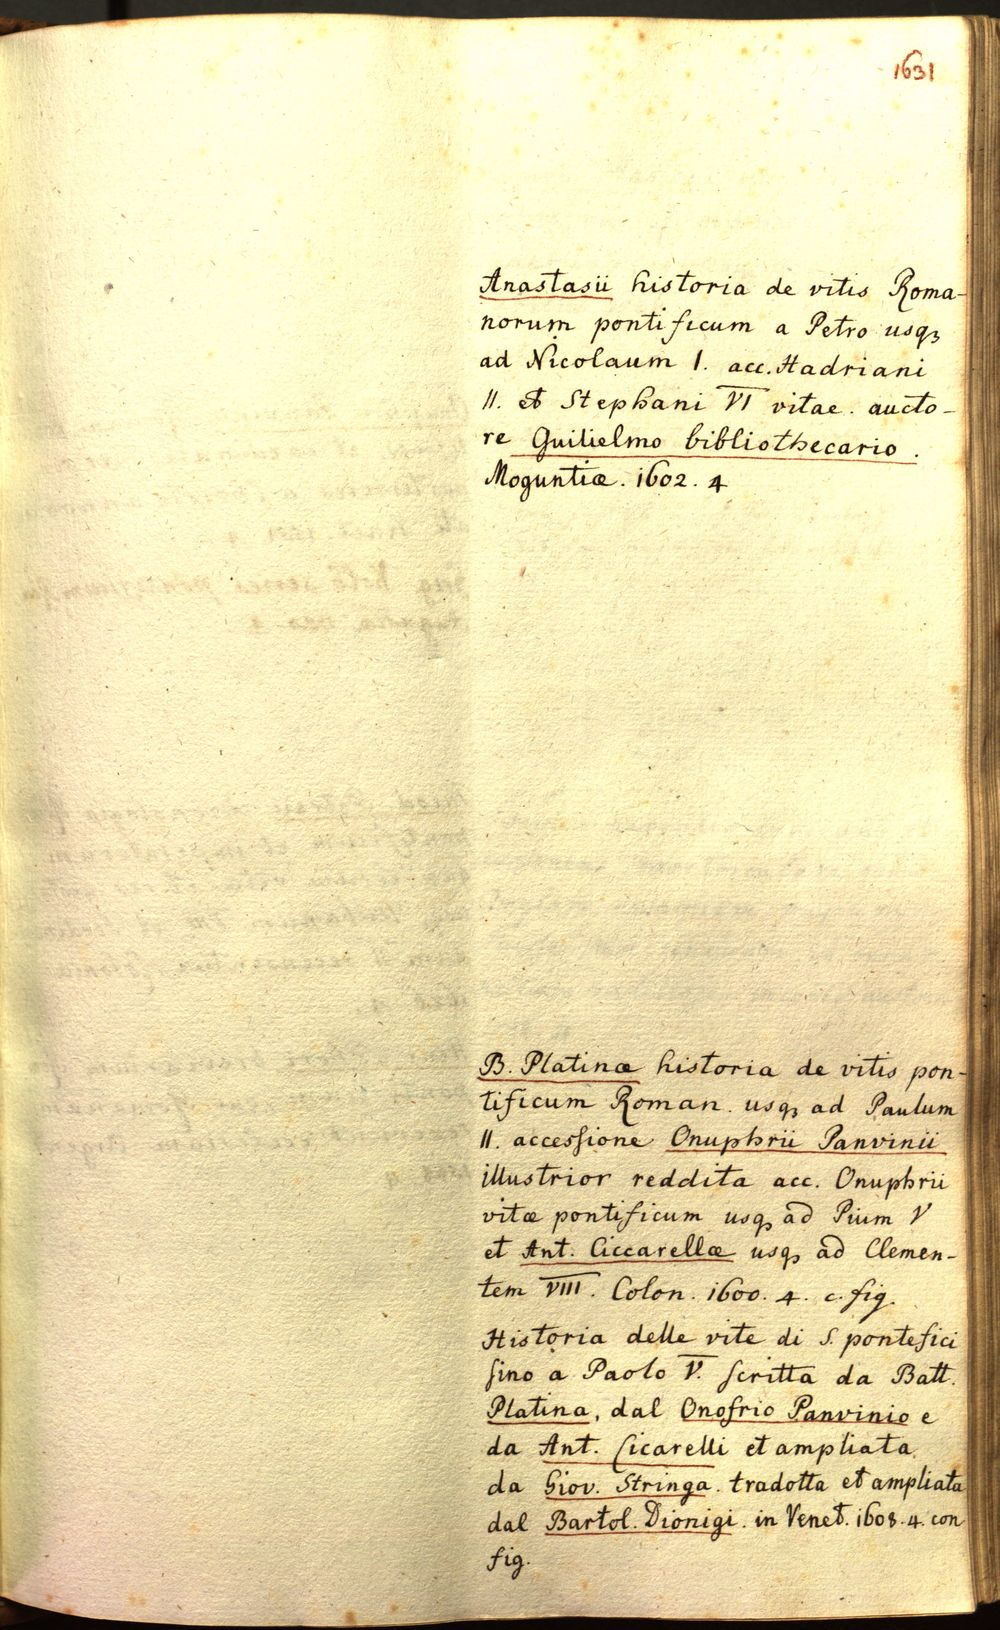 1631
Anastasii historia de vitis Roma-
norum pontificum a Petro usqꝫ
ad Nicolaum I. acc. Hadriani
II. et Stephani VI vitae. aucto-
re Guilielmo bibliothecario.
Moguntiæ. 1602. 4
B. Platinæ historia de vitis pon-
tificum Roman. usqꝫ ad Paulum
II. accessione Onuphrii Panvinii
illustrior reddita acc. Onuphrii
vitæ pontificum usqꝫ ad Pium V
et Ant. Ciccarellæ usqꝫ ad Clemen-
tem VIII. Colon. 1600. 4. c. fig.
Historia delle vite di S. pontefici
sino a Paolo V. scritta da Batt.
Platina, dal Onofrio Panvinio e
da Ant. Cicarelli et ampliata
da Giov. Stringa. tradotta et ampliata
dal Bartol. Dionigi. in Venet. 1608. 4. con
fig.